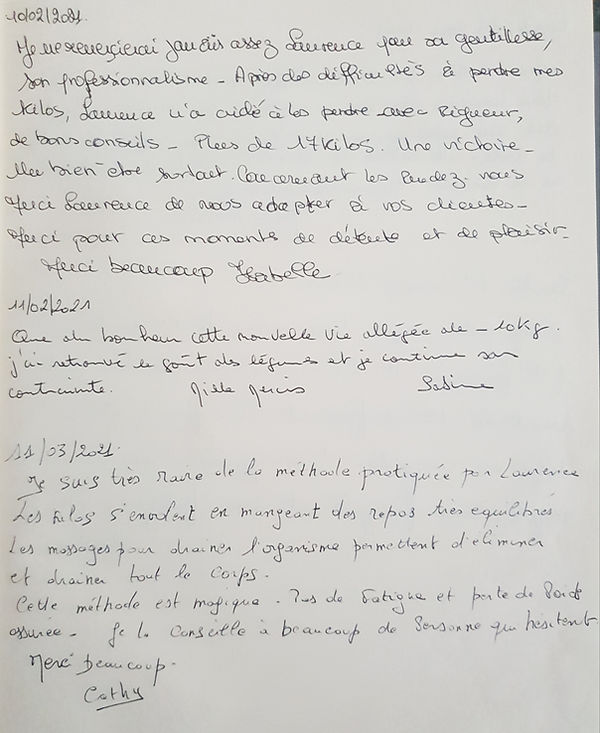 10/02/2021.
Je ne remercierai jamais assez Laurence pour sa gentillesse,
son professionnalisme - Après des difficultés à perdre mes
kilos, Laurence m'a aidé à les perdre avec Rigueur,
de bons conseils - Plus de 17 kilos. Une victoire -
Un bien-être surtout. Concernant les Rendez-vous
Merci Laurence de vous adapter à vos clientes -
Merci pour ces moments de détente et de plaisir -
Merci beaucoup Isabelle
11/02/2021
Que du bonheur cette nouvelle vie allégée de - 10kg.
j'ai retrouvé le goût des légumes et je continue san
contrainte. Mille Mercis Sabine
11/03/2021.
Je suis très ravie de la méthode pratiquée par Laurence
Les Kilos s'envolent en mangeant des repas très equilibrés
Les massages pour drainer l'organisme permettent d'éliminer
et drainer tout le corps.
Cette méthode est magique. Pas de Fatigue et perte de Poids
assurée - Je la conseille à beaucoup de Personne qui hésitent
Merci beaucoup.
Cathy